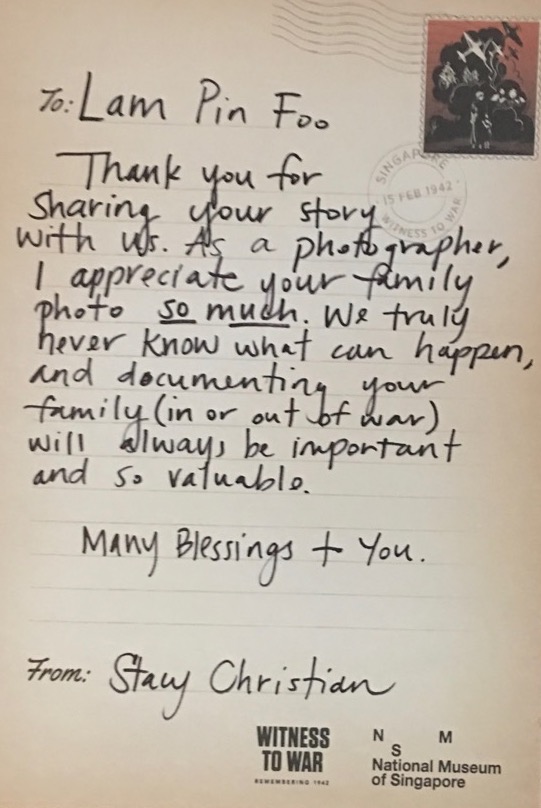 To: Lam Pin Foo
SINGAPORE
15 FEB 1942
WITNESS TO WAR
Thank you for
Sharing your story
with us. As a photographer,
I appreciate your family
photo so much. We truly
never know what can happen,
and documenting your
family (in or out of war)
will always be important
and so valuable.
Many Blessings + You.
From: Stacy Christian
WITNESS
TO WAR
REMEMBERING 1942
N M
S
National Museum
of Singapore